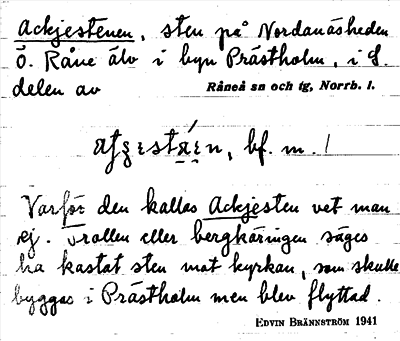 Ackjestenen, sten på Nordanåsheden
ö. Råne älv i byn Prästholm, i S.
delen av Råneå sn och tg, Norrb. l.
bf. m. /
Varför den kallas Ackjesten vet man
ej. Trollen eller bergkäringen säges
ha kastat sten mot kyrkan, som skulle
byggas i Prästholm men blev flyttad.
EDVIN BRÄNNSTRÖM 1941